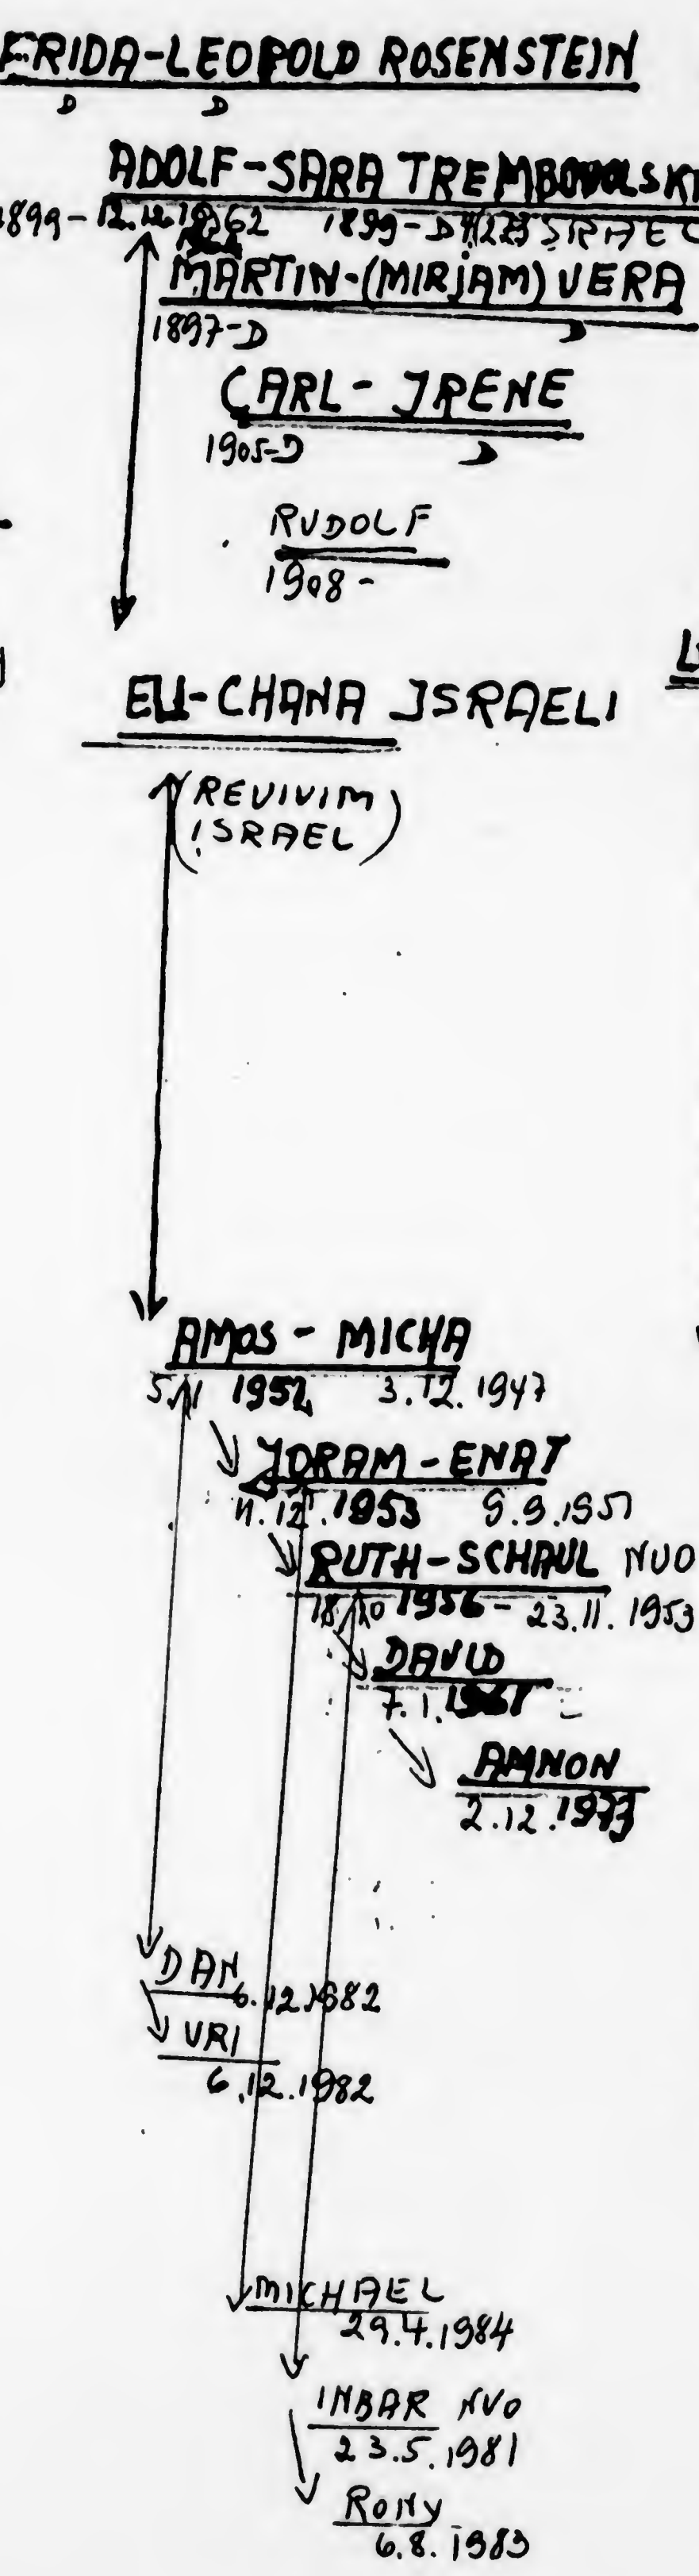 FRIDA-LEOPOLD ROSENSTEIN
D D
ADOLF-SARA
1899- 1899-D ISRAEL
MARTIN-(MIRJAM) VERA
1897-D D
CARL- IRENE
1905-D D
RUDOLF
1908-
ELI-CHANA ISRAELI
(REVIVIM
ISRAEL)
AMOS - MICHA
5.11 1952 3.12.1947
JORAM-ENAT
11.12.1953 9.9.1957
RUTH-SCHAUL NVO
18.10 1956- 23.11.1953
DAVID
7.1.1961
AMNON
2.12.1973
DAN
6.12.1982
URI
6.12.1982
MICHAEL
29.4.1984
INBAR NVO
23.5.1981
RONY
6.8.1983